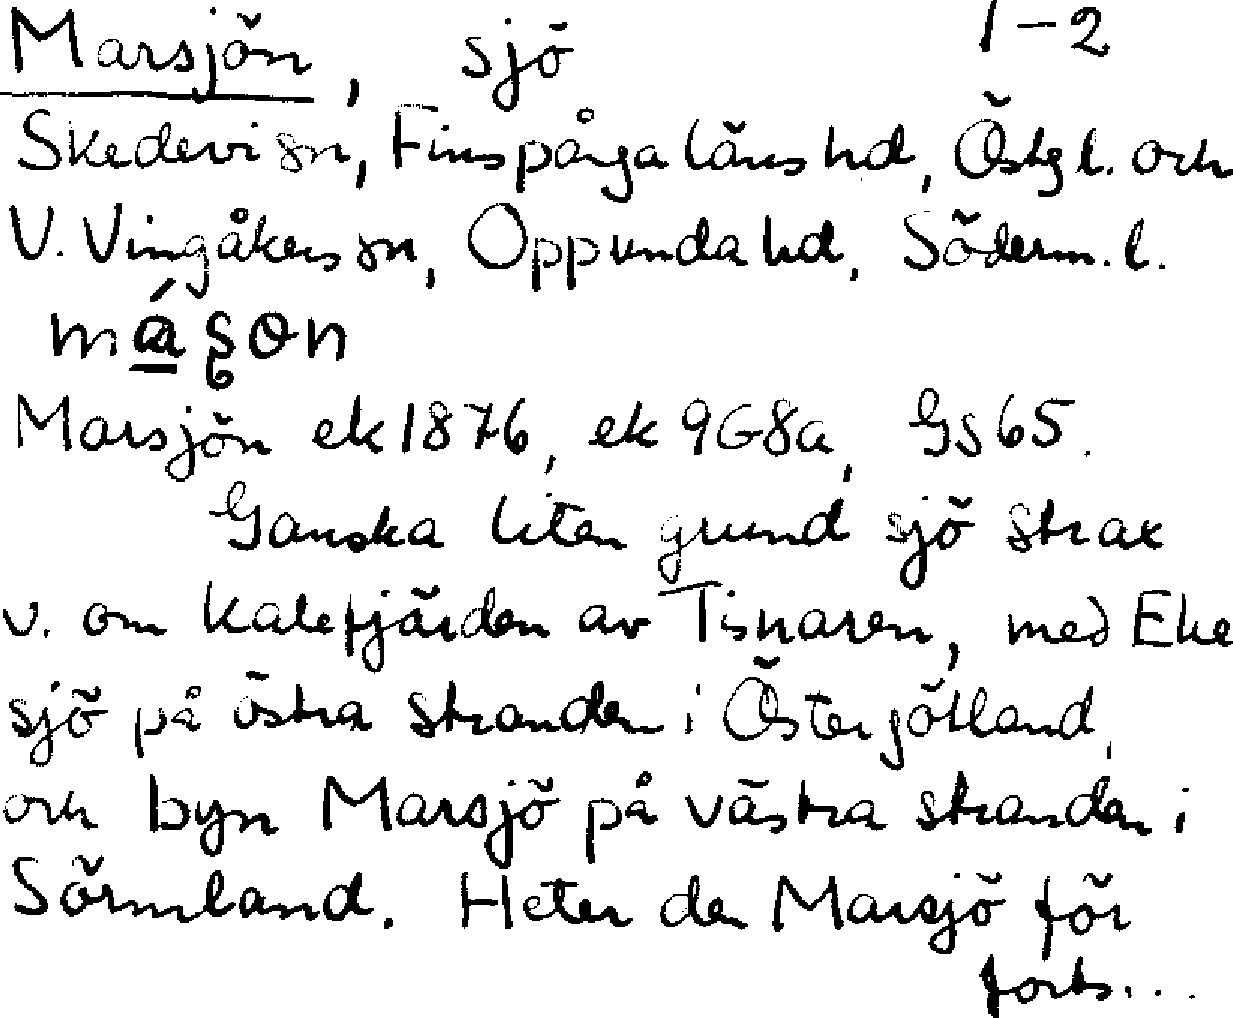 Marsjön, sjö 1-2
Skedevi sn, Finspånga läns hd, Östg l. och
V. Vingåkers sn, Oppunda hd, Söderm. l.
Marsjön ek 1876, ek 9G8a, GS65.
Ganska liten grund sjö strax
v. om Kalefjärden av Tisnaren, med Eke
sjö på östra stranden i Östergötland,
och byn Marsjö på västra stranden i
Sörmland. Heter den Marsjö för
forts...